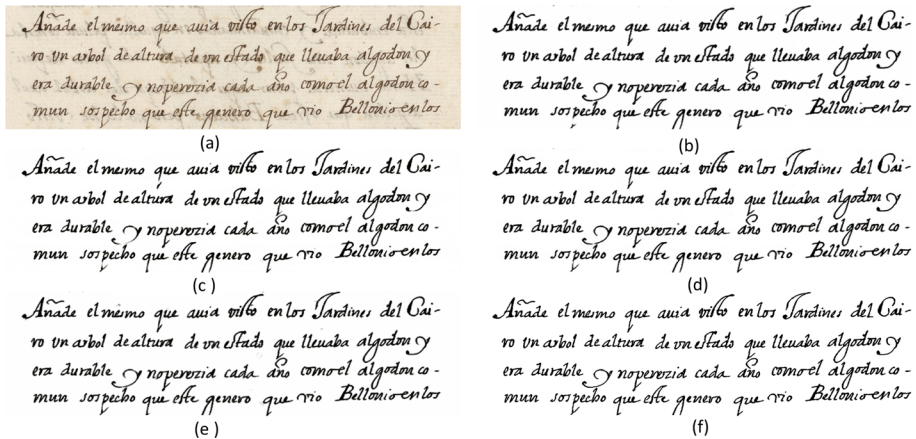 Añade el mesmo que auia visto en los Jardines del Cai-
ro vn arbol de altura de vn estado que lleuaba algodon y
era durable y noperezia cada año como el algodon co-
mun sospecho que este genero que vio Bellonio en los
(a)
Añade el mesmo que auia visto en los Jardines del Cai-
ro vn arbol de altura de vn estado que lleuaba algodon y
era durable y noperezia cada año como el algodon co-
mun sospecho que este genero que vio Bellonio en los
(b)
Añade el mesmo que auia visto en los Jardines del Cai-
ro vn arbol de altura de vn estado que lleuaba algodon y
era durable y noperezia cada año como el algodon co-
mun sospecho que este genero que vio Bellonio en los
(c)
Añade el mesmo que auia visto en los Jardines del Cai-
ro vn arbol de altura de vn estado que lleuaba algodon y
era durable y noperezia cada año como el algodon co-
mun sospecho que este genero que vio Bellonio en los
(d)
Añade el mesmo que auia visto en los Jardines del Cai-
ro vn arbol de altura de vn estado que lleuaba algodon y
era durable y noperezia cada año como el algodon co-
mun sospecho que este genero que vio Bellonio en los
(e)
Añade el mesmo que auia visto en los Jardines del Cai-
ro vn arbol de altura de vn estado que lleuaba algodon y
era durable y noperezia cada año como el algodon co-
mun sospecho que este genero que vio Bellonio en los
(f)